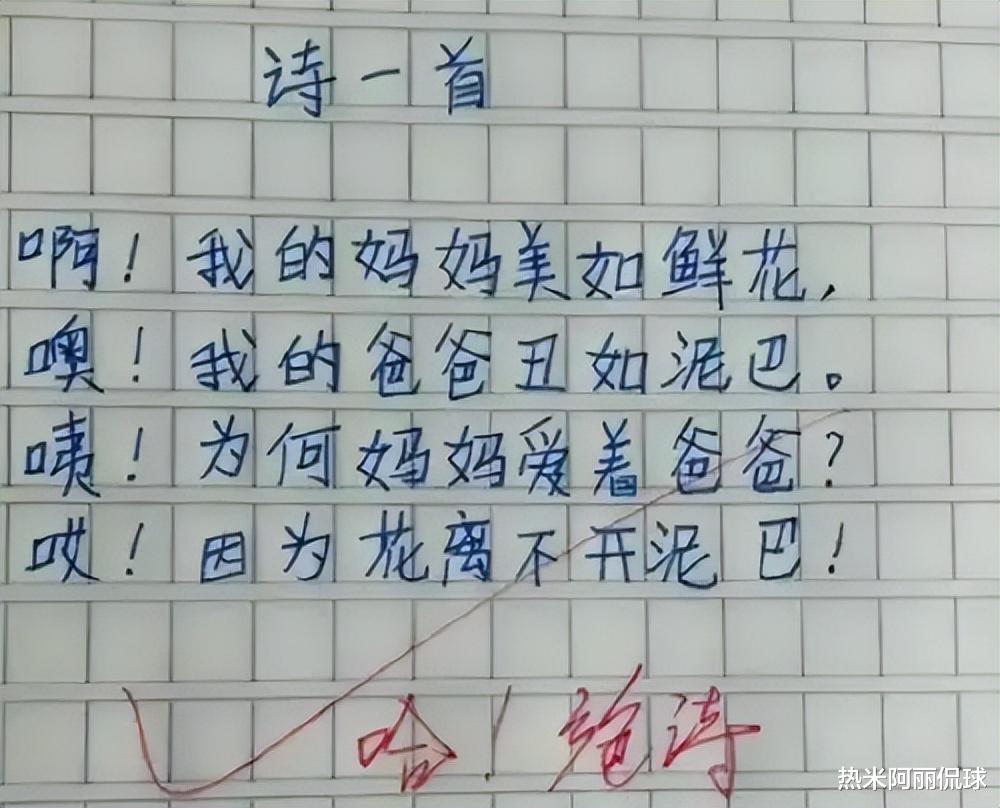 诗一首
啊！我的妈妈美如鲜花，
噢！我的爸爸丑如泥巴。
咦！为何妈妈爱着爸爸？
哎！因为花离不开泥巴！
哈！绝诗
热米阿丽侃球